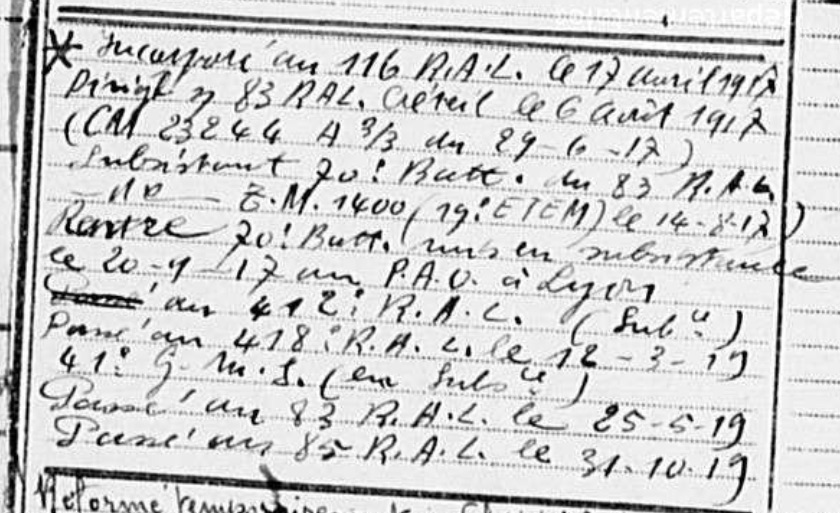 * Incorporé au 116 R.A.L. le 17 avril 1917
Dirigé 83 RAL. Créteil le 6 Août 1917
(CM 23244 A 3/3 du 29-6-17)
Subsistant 70e Batt. du 83 R.A.L.
T.M. 1400 (19e ETEM) le 14-8-17)
Rentré 70e Batt. mis en subsistance
le 20-9-17 au P.A.O. à Lyon
Passé au 412e R.A.L. (Subce)
Passé au 418e R.A.L. le 12-3-19
41e G.M.S. (en Subsce)
Passé au 83 R.A.L. le 25-5-19
Passé au 85 R.A.L. le 31-10-19
Réformé temporaire